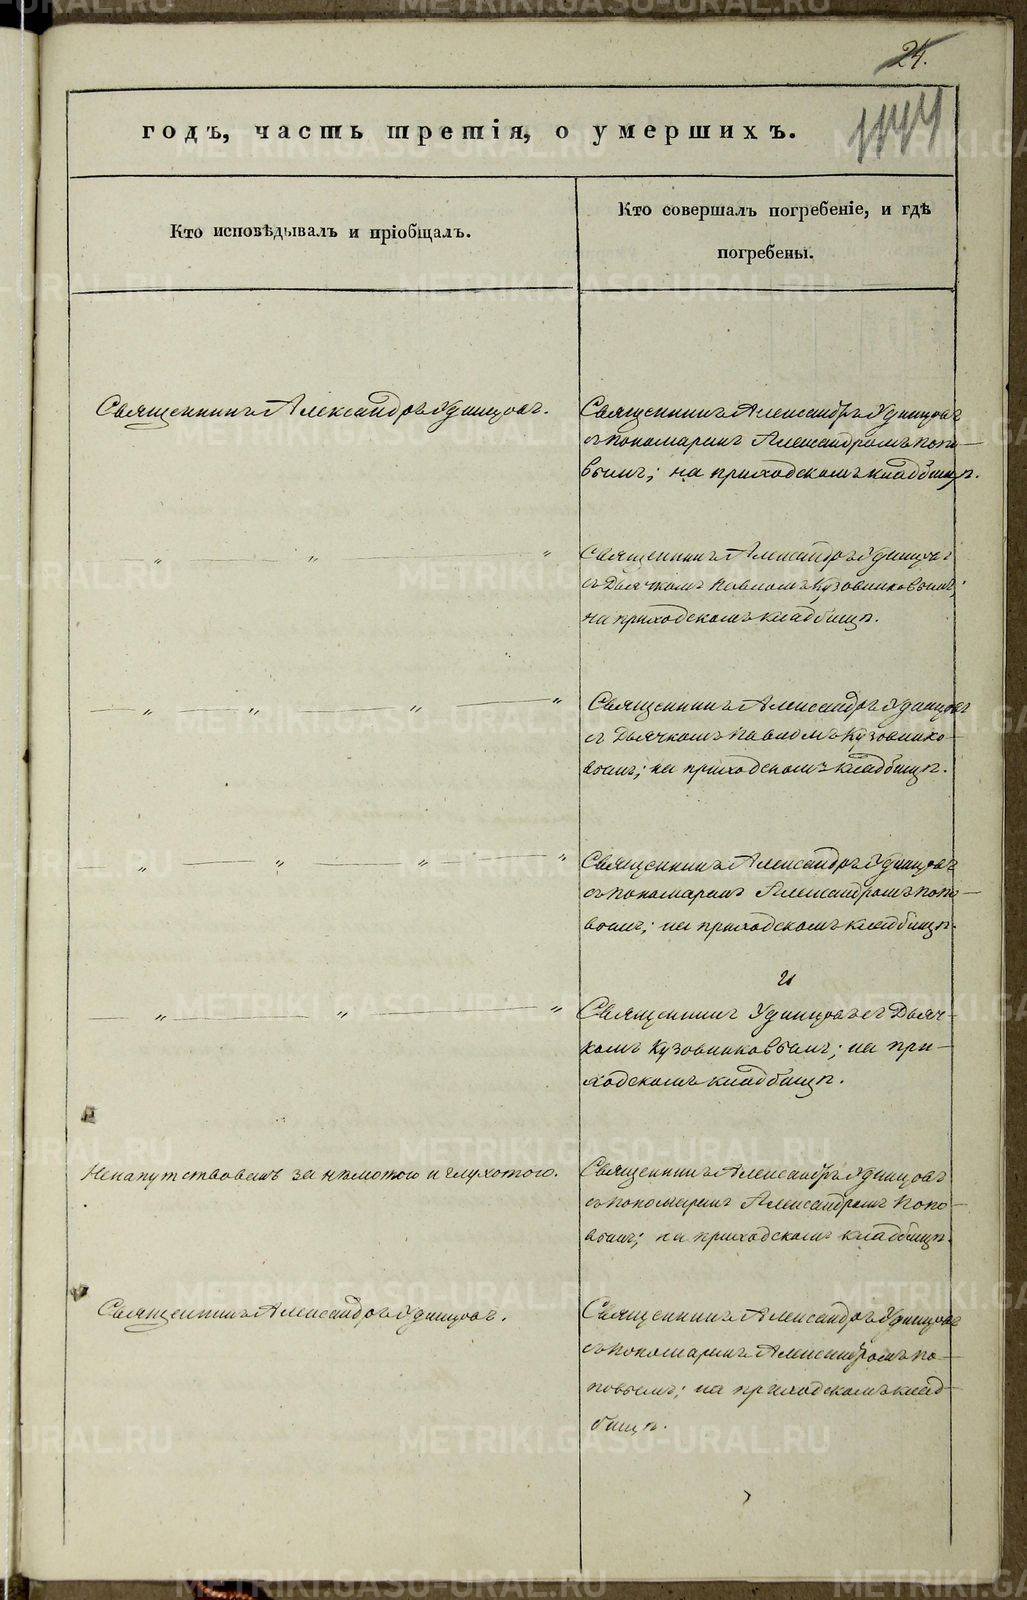 24.
годъ, часть третія, о умершихъ.
Кто исповѣдывалъ и пріобщалъ.
Кто совершалъ погребеніе, и гдѣ
погребены.
Священникъ Александръ Удинцовъ.
Священникъ Александръ Удинцовъ
съ пономаремъ Александромъ Попо-
вымъ; на приходскомъ кладбищѣ.
— " — " — "
Священникъ Александръ Удинцовъ
съ Дьячкомъ Павломъ Кузовниковымъ;
на приходскомъ кладбищѣ.
— " — " — " — "
Священникъ Александръ Удинцовъ
съ Дьячкомъ Павломъ Кузовнико-
вымъ; на приходскомъ кладбищѣ.
" — " — " — "
Священникъ Александръ Удинцовъ
съ пономаремъ Александромъ Попо-
вымъ; на приходскомъ кладбищѣ.
— " — " — "
Священникъ Удинцовъ съ Дьяч-
комъ Кузовниковымъ; на при-
ходскомъ кладбищѣ.
Ненапутствованъ за нѣмотою и глухотою.
Священникъ Александръ Удинцовъ
съ пономаремъ Александромъ Попо-
вымъ; на приходскомъ кладбищѣ.
Священникъ Александръ Удинцовъ.
Священникъ Александръ Удинцовъ
съ пономаремъ Александромъ По-
повымъ; на приходскомъ клад-
бищѣ.
METRIKI.GASO-URAL.RU